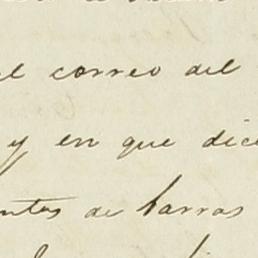 el correo del
y en que dice
ntos de barras